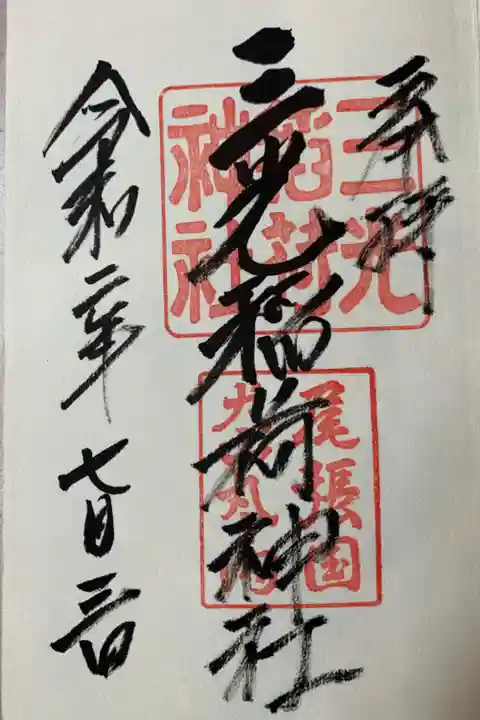 奉拝
三光稲荷神社
三光
稲荷
神社
尾張国
令和二年七月三日